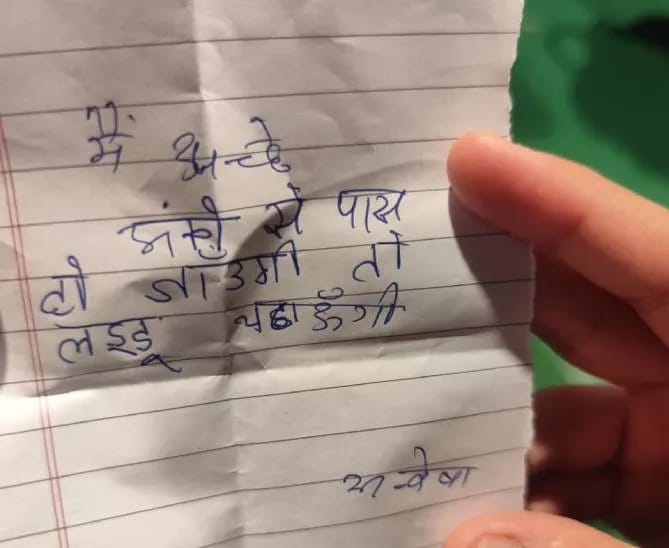 मैं अच्छे
अंको से पास
हो जाउगी तो
लड्डू चढाऊँगी
अन्वेषा